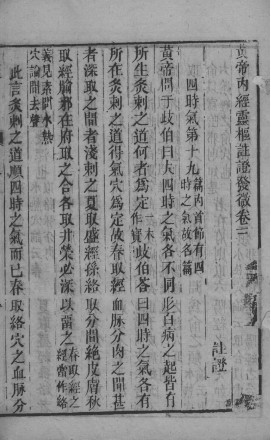 黃帝內經靈樞註證發微卷三
註證
四時氣第十九篇內首節有四時之氣故名篇
黃帝問于歧伯曰夫四時之氣各不同形百病之起皆有
所生灸刺之道何者爲定一本作寶歧伯荅曰四時之氣各有
所在灸刺之道得氣穴爲定故春取經血脉分肉之間甚
者深取之間者淺刺之夏取盛經孫絡取分間絕皮膚秋
取經腧邪在府取之合冬取井滎必深以留之春取經之經當作絡
義見素問水熱穴論間去聲
此言灸刺之道順四時之氣而已春取絡穴之血脉分